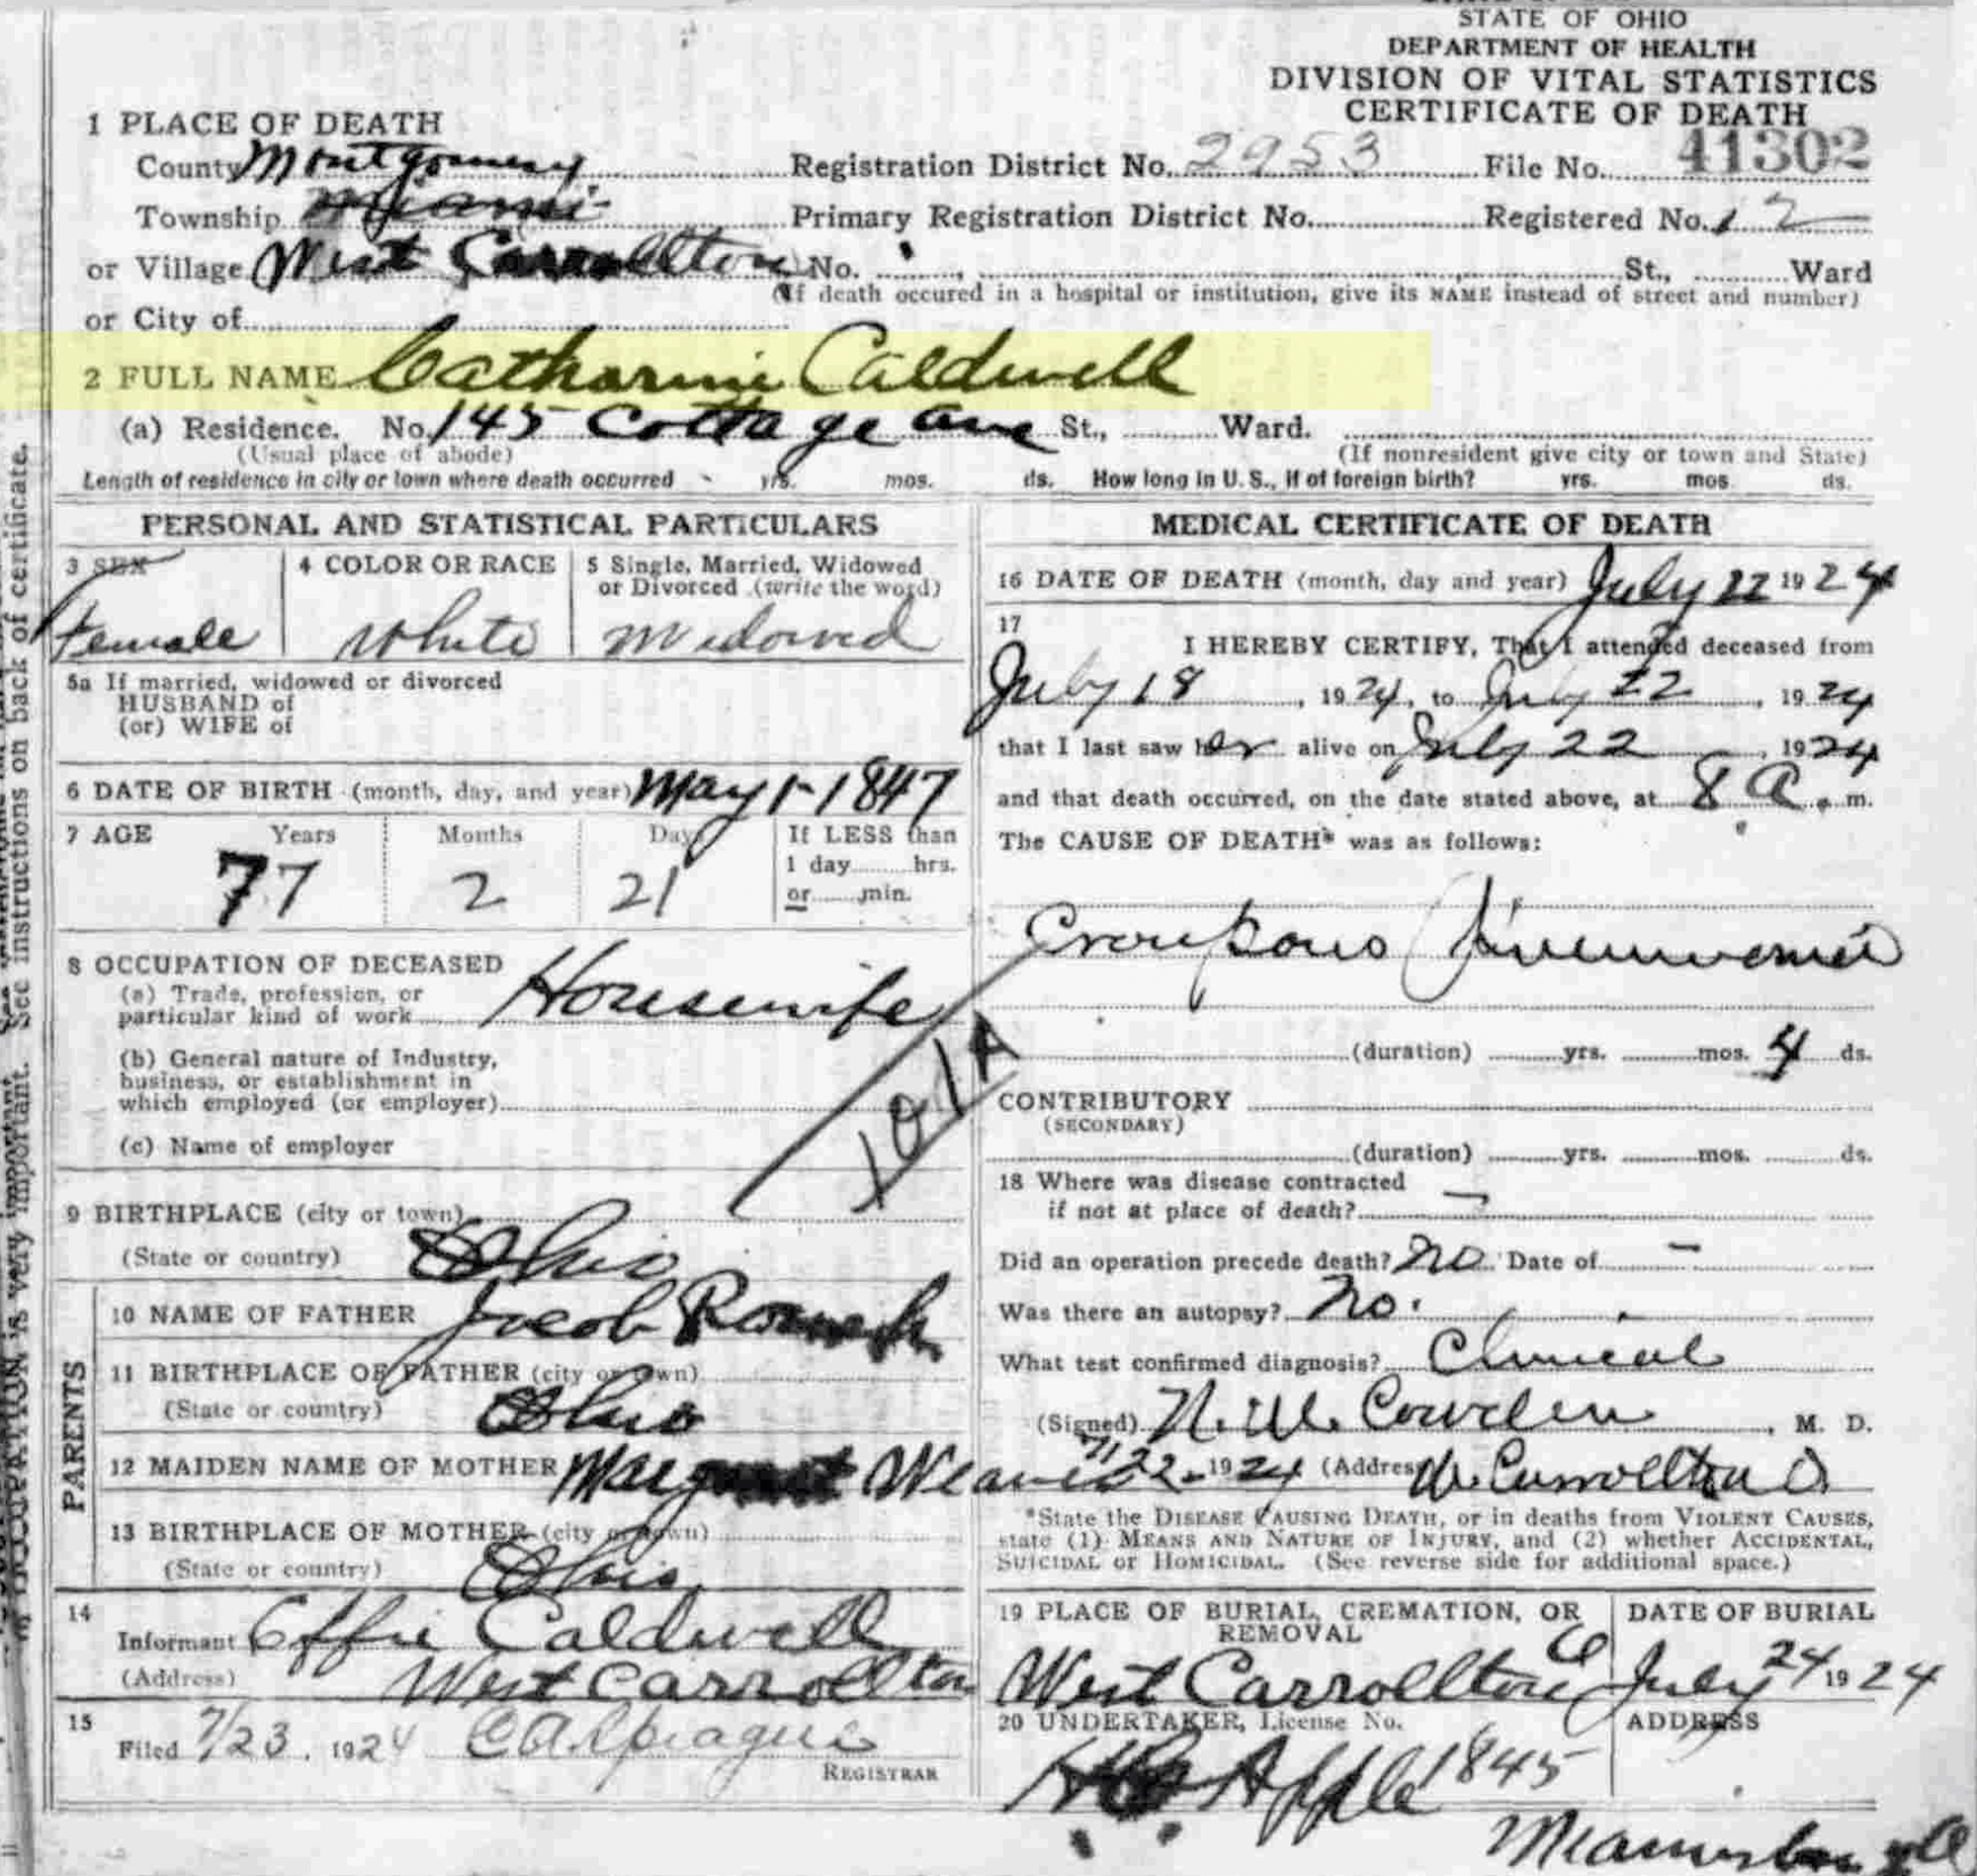 STATE OF OHIO
DEPARTMENT OF HEALTH
DIVISION OF VITAL STATISTICS
CERTIFICATE OF DEATH
1 PLACE OF DEATH
County Montgomery Registration District No. 2953 File No. 41302
Township Miami Primary Registration District No. Registered No. 12
or Village West Carrollton No. St., Ward
(If death occured in a hospital or institution, give its NAME instead of street and number)
or City of
2 FULL NAME Catharine Caldwell
(a) Residence. No. 145 Cottage Ave St., Ward.
(Usual place of abode) (If nonresident give city or town and State)
Length of residence in city or town where death occurred yrs. mos. ds. How long in U. S., if of foreign birth? yrs. mos ds.
PERSONAL AND STATISTICAL PARTICULARS
3 SEX 4 COLOR OR RACE 5 Single, Married, Widowed
or Divorced (write the word)
Female White Widowed
5a If married, widowed or divorced
HUSBAND of
(or) WIFE of
6 DATE OF BIRTH (month, day, and year) May 1-1847
7 AGE Years Months Days If LESS than
1 day hrs.
or min.
77 2 21
8 OCCUPATION OF DECEASED
(a) Trade, profession, or
particular kind of work Housewife
(b) General nature of Industry,
business, or establishment in
which employed (or employer)
(c) Name of employer
101A
9 BIRTHPLACE (city or town)
(State or country) Ohio
PARENTS
10 NAME OF FATHER Jacob
11 BIRTHPLACE OF FATHER (city or town)
(State or country) Ohio
12 MAIDEN NAME OF MOTHER Margaret Weaver
13 BIRTHPLACE OF MOTHER (city or town)
(State or country) Ohio
14
Informant Effie Caldwell
(Address) West Carrollton
15
Filed 7/23, 1924 CA Sprague
REGISTRAR
MEDICAL CERTIFICATE OF DEATH
16 DATE OF DEATH (month, day and year) July 22 1924
17
I HEREBY CERTIFY, That I attended deceased from
July 18, 1924, to July 22, 1924
that I last saw her alive on July 22, 1924
and that death occurred, on the date stated above, at 8 A. m.
The CAUSE OF DEATH* was as follows:
Croupous Pneumonia
(duration) yrs. mos. 4 ds.
CONTRIBUTORY
(SECONDARY)
(duration) yrs. mos. ds.
18 Where was disease contracted
if not at place of death? -
Did an operation precede death? no Date of -
Was there an autopsy? No.
What test confirmed diagnosis? Clinical
(Signed) Cowden, M. D.
7/22-1924 (Address) W. Carrollton O
*State the DISEASE CAUSING DEATH, or in deaths from VIOLENT CAUSES,
state (1) MEANS AND NATURE OF INJURY, and (2) whether ACCIDENTAL,
SUICIDAL or HOMICIDAL. (See reverse side for additional space.)
19 PLACE OF BURIAL, CREMATION, OR
REMOVAL
West Carrollton
DATE OF BURIAL
July 24 1924
20 UNDERTAKER, License No. ADDRESS
Apple 1845
Miamisburg
See instructions on back of certificate.
OCCUPATION is very important.